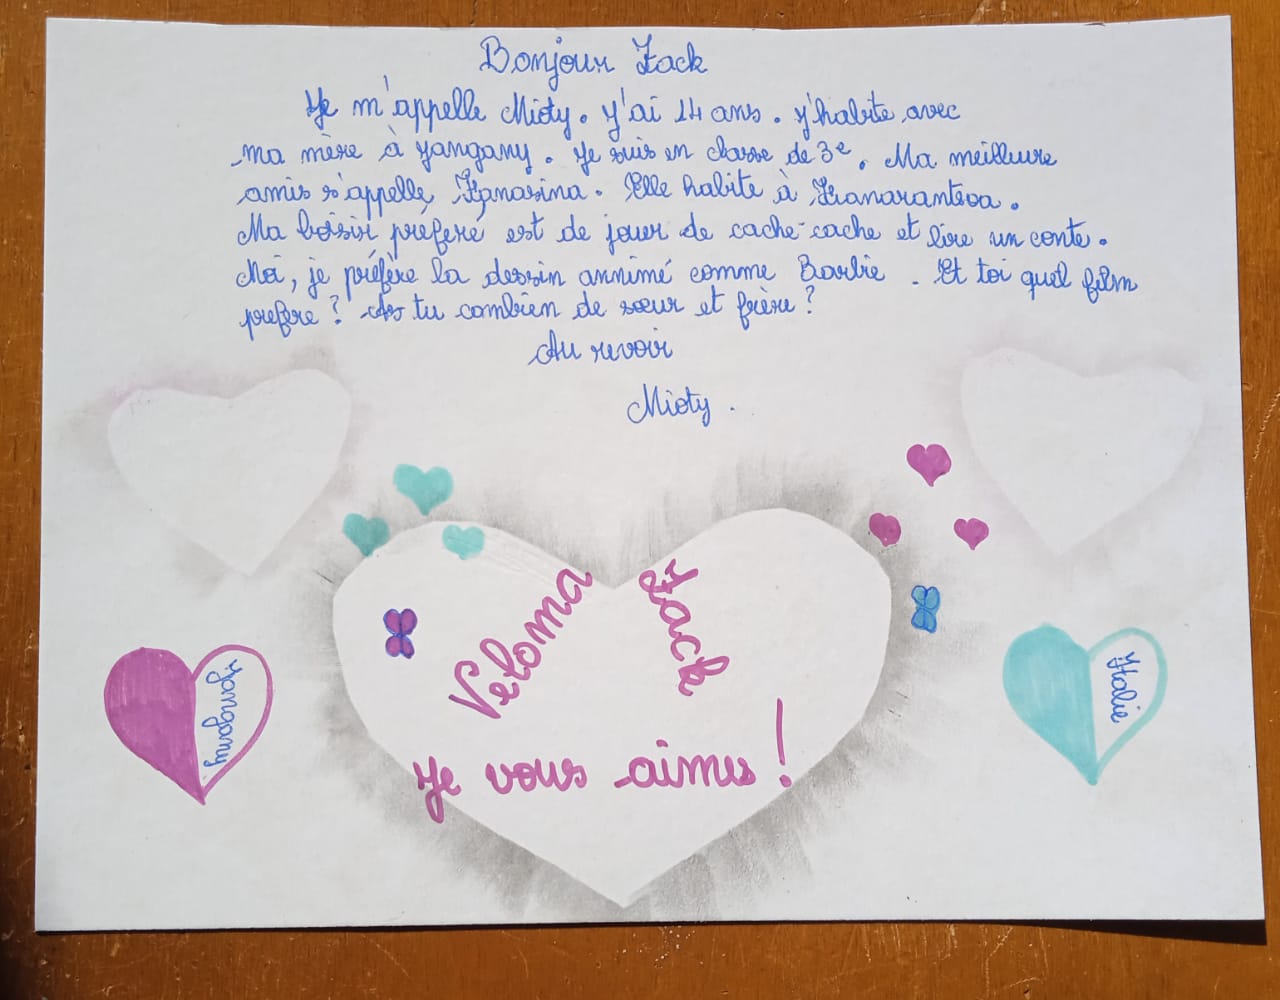 Bonjour Zack
Je m'appelle Mioty. J'ai 14 ans. J'habite avec
ma mère à Yangany. Je suis en classe de 3e. Ma meilleure
amis s'appelle, Elle habite à
Ma loisir préferé est de jouer de cache-cache et lire un conte.
Moi, je préfère la dessin annimé comme Barbie. Et toi quel film
prefère? As tu combien de sœur et frère?
Au revoir
Mioty.
Veloma Zack
Je vous aimes!
Yangany
Italie